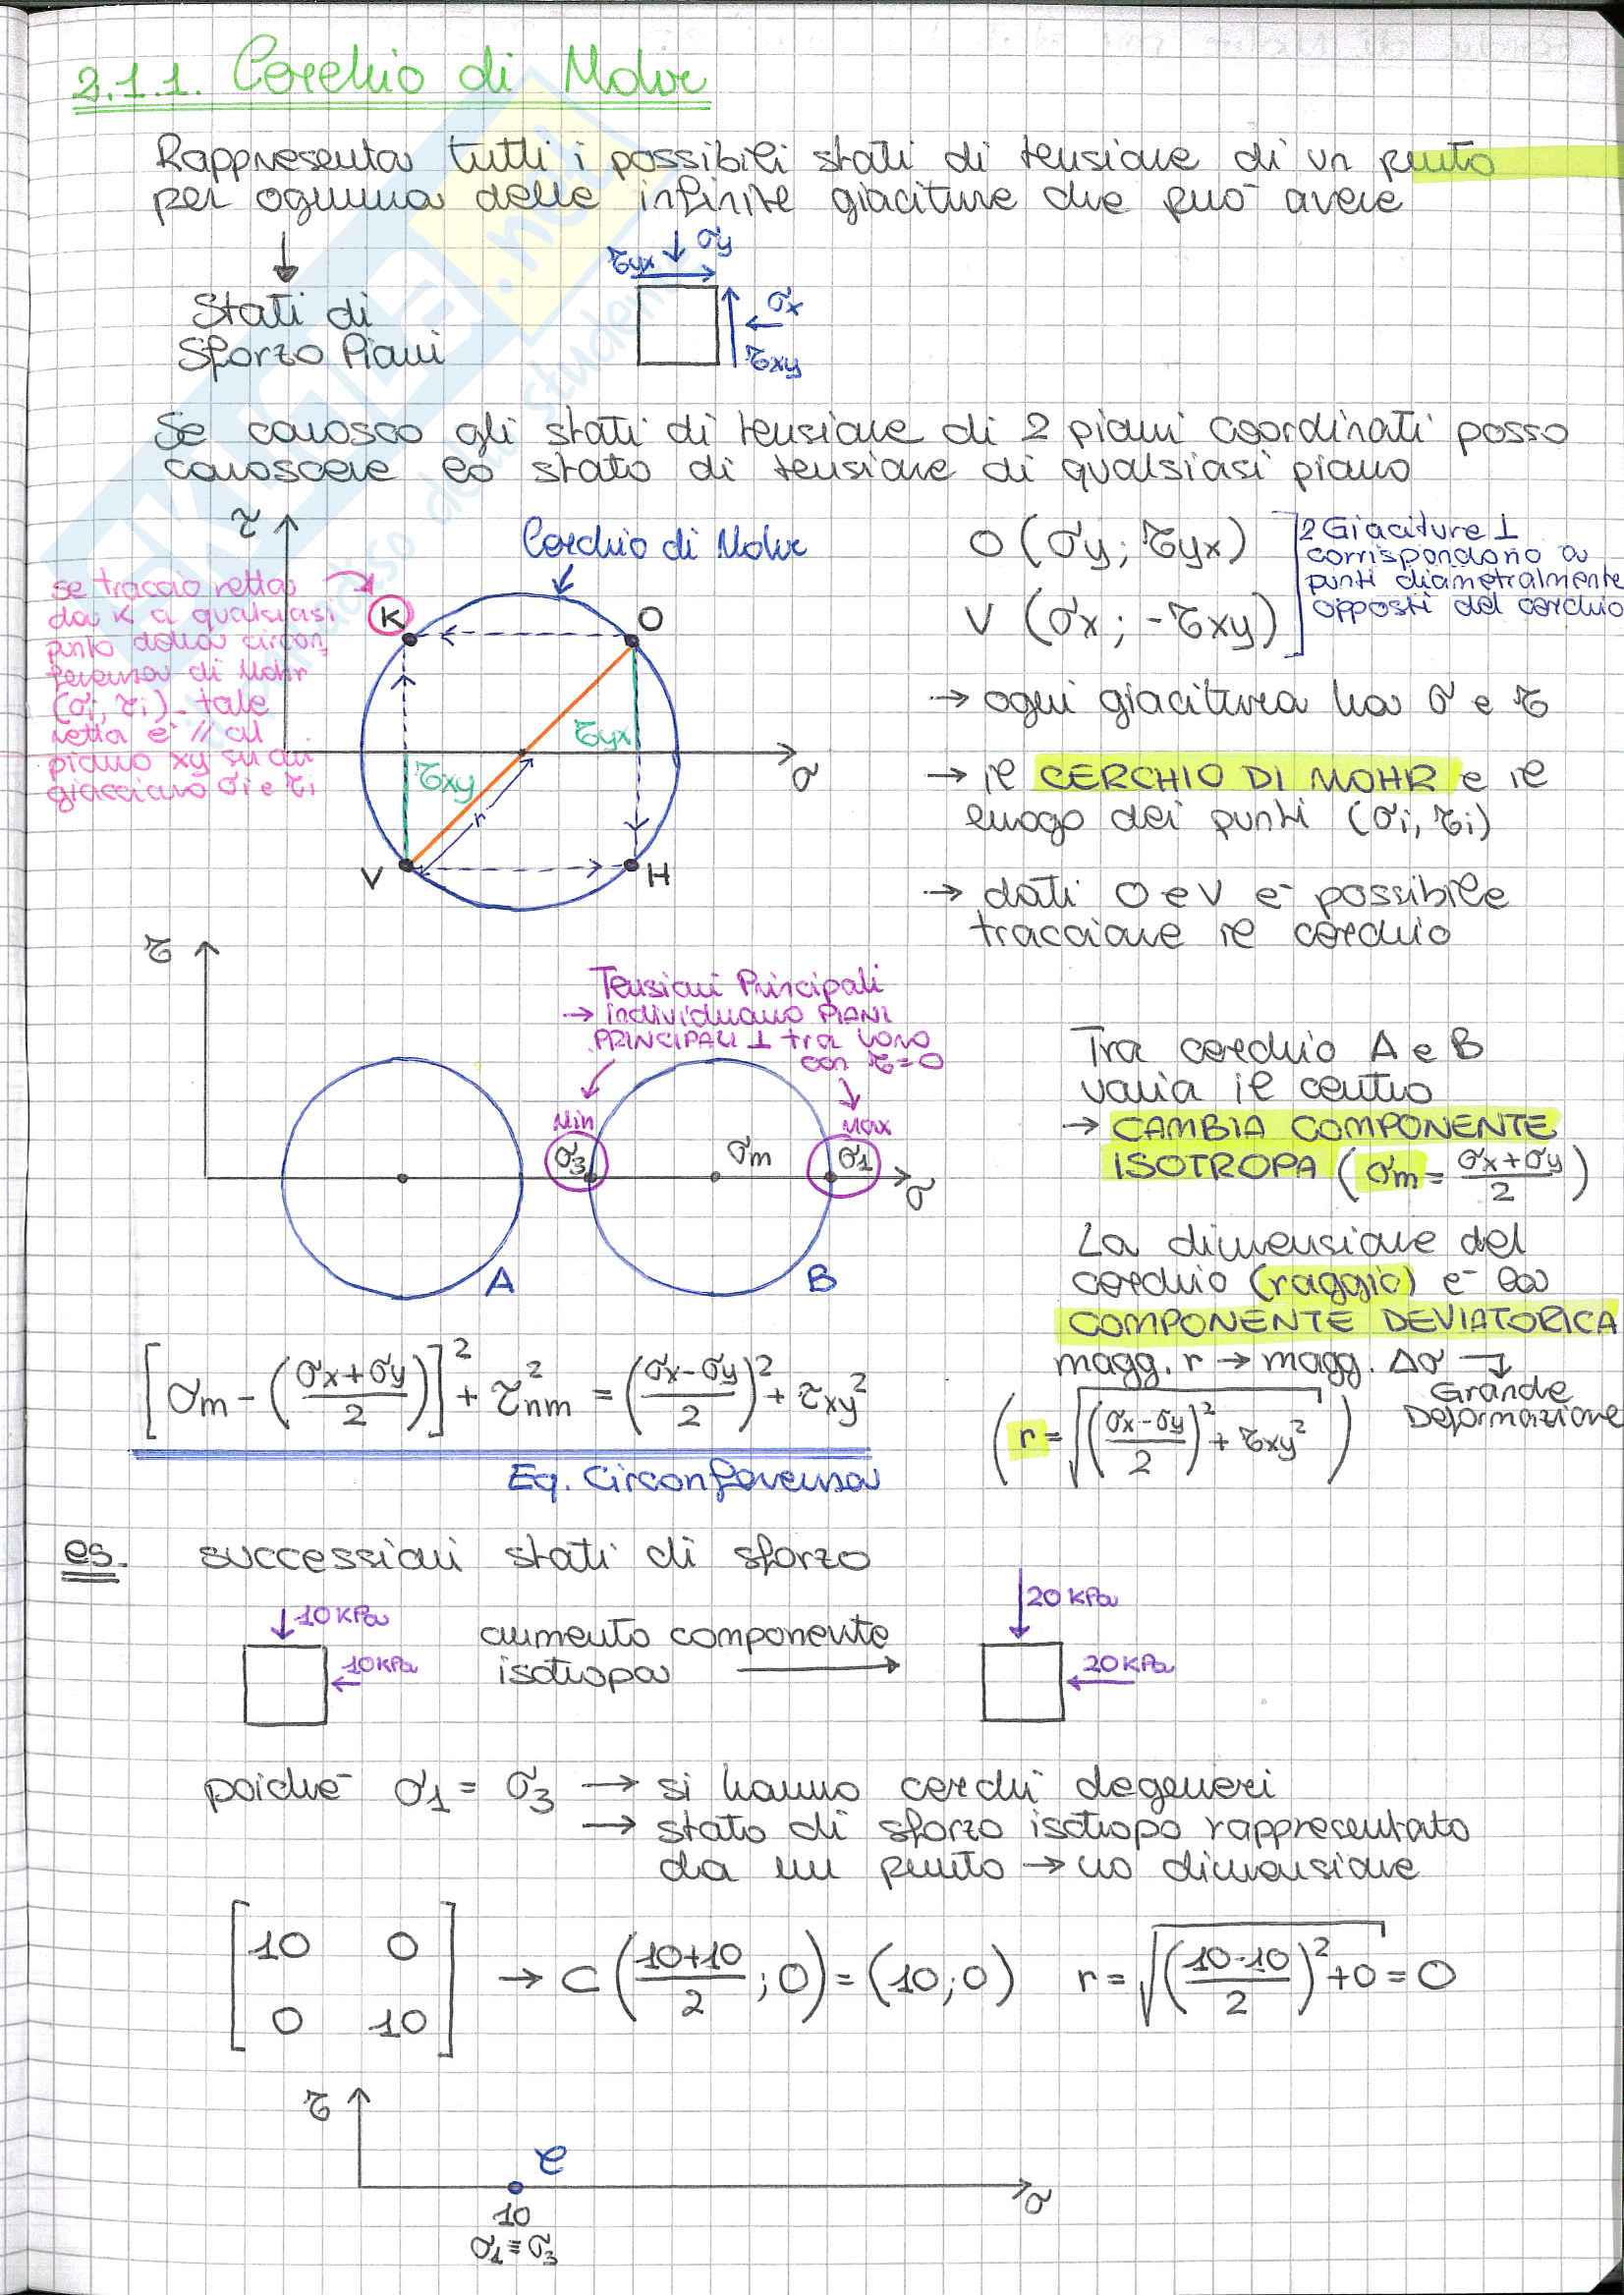 2.1.1. Cerchio di Mohr
Rappresenta tutti i possibili stati di tensione di un punto
per ognuna delle infinite giaciture che può avere
↓
Stati di
Sforzo Piani
τyx ↓ σy
← σx
τxy
Se conosco gli stati di tensione di 2 piani coordinati posso
conoscere lo stato di tensione di qualsiasi piano
τ
Cerchio di Mohr
se traccio retta
da K a qualsiasi
punto della circon
ferenza di Mohr
(σi, τi) - tale
retta è // al
piano xy su cui
giacciano σi e τi
K
O
τyx
τxy
r
σ
V
H
O (σy; τyx)
V (σx; -τxy)
2 Giaciture ⊥
corrispondono a
punti diametralmente
opposti del cerchio
→ ogni giacitura ha σ e τ
→ il CERCHIO DI MOHR è il
luogo dei punti (σi, τi)
→ dati O e V è possibile
tracciare il cerchio
τ
Tensioni Principali
→ individuano PIANI
PRINCIPALI ⊥ tra loro
con τ=0
Min
Max
σ3
σm
σ1
σ
A
B
Tra cerchio A e B
varia il centro
→ CAMBIA COMPONENTE
ISOTROPA (σm = (σx+σy)/2)
La dimensione del
cerchio (raggio) è la
COMPONENTE DEVIATORICA
magg. r → magg. Δσ →
Grande
Deformazione
(r = √(((σx-σy)/2)² + τxy²))
[σm - ((σx+σy)/2)]² + τ²nm = ((σx-σy)/2)² + τxy²
Eq. Circonferenza
es. successioni stati di sforzo
↓ 10 KPa
← 10 KPa
aumento componente
isotropa →
↓ 20 KPa
← 20 KPa
poiché σ1 = σ3 → si hanno cerchi degeneri
→ stato di sforzo isotropo rappresentato
da un punto → no dimensione
[10 0
0 10] → C ((10+10)/2 ; 0) = (10;0) r = √(((10-10)/2)² + 0) = 0
τ
C
σ
10
σ1 ≡ σ3